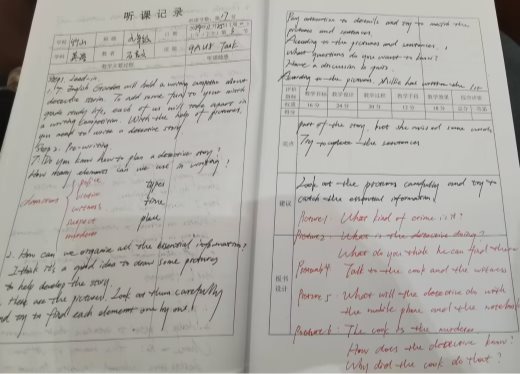 听课记录
学科
班级
学科 英语
教师
课题 9AU8 Task
教学主要过程
Step 1. Lead-in
1. English Garden will hold a writing competition about
detective stories. To add some fun to your ninth
grade ready life, each of us will take apart in
a writing competition. With the help of pictures,
you need to write a detective story
Step 2. Pre-writing
1. Do you know how to plan a detective story?
How many elements can we use in writing?
characters police types
victim time
witness place
suspect
murderer
2. How can we organize all the essential information?
I think it's a good idea to draw some pictures
to help develop the story.
these are the pictures. Look at them carefully
and try to find each element one by one!
Pay attention to details and try to match the
pictures and sentences.
According to the pictures and sentences,
What questions do you want to know?
Have a discussion in pairs.
According to the pictures, Millie has written the first
评价指标 教学目标 教学设计 教学过程 教学手段 教学效果 综合评价
权重 16分 24分 20分 12分 18分 总分 等第
得分
part of the story, but she missed some words
Try to complete the sentences
优点
建议
Look at the pictures carefully and try to
catch the essential information
板书设计
Picture 1: What kind of crime is it?
Picture 2: What is the detective doing?
What do you think he can find there
Picture 4: Talk to the cook and the witness
Picture 5: What will the detective do with
the mobile phone and the notebook
Picture 6: The cook is the murderer
How does the detective know?
Why did the cook do that?